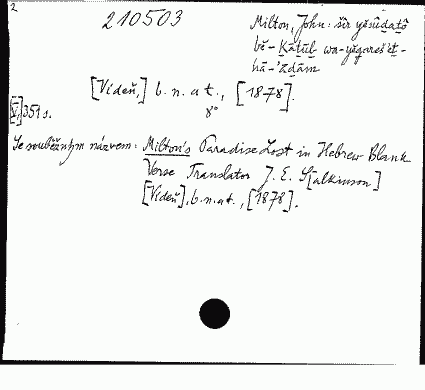 2
210503
Milton, John: šîr yĕsûdatô
bĕ-Kātûb wa-yĕgareš 'et-
hā-'ādām
[Vídeň,] b. n. a t., [1878].
8°
[V,] 351 s.
Se souběžným názvem: Milton's Paradise Lost in Hebrew Blank
Verse Translator J. E. S[alkinson]
[Vídeň], b. n. a t., [1878].